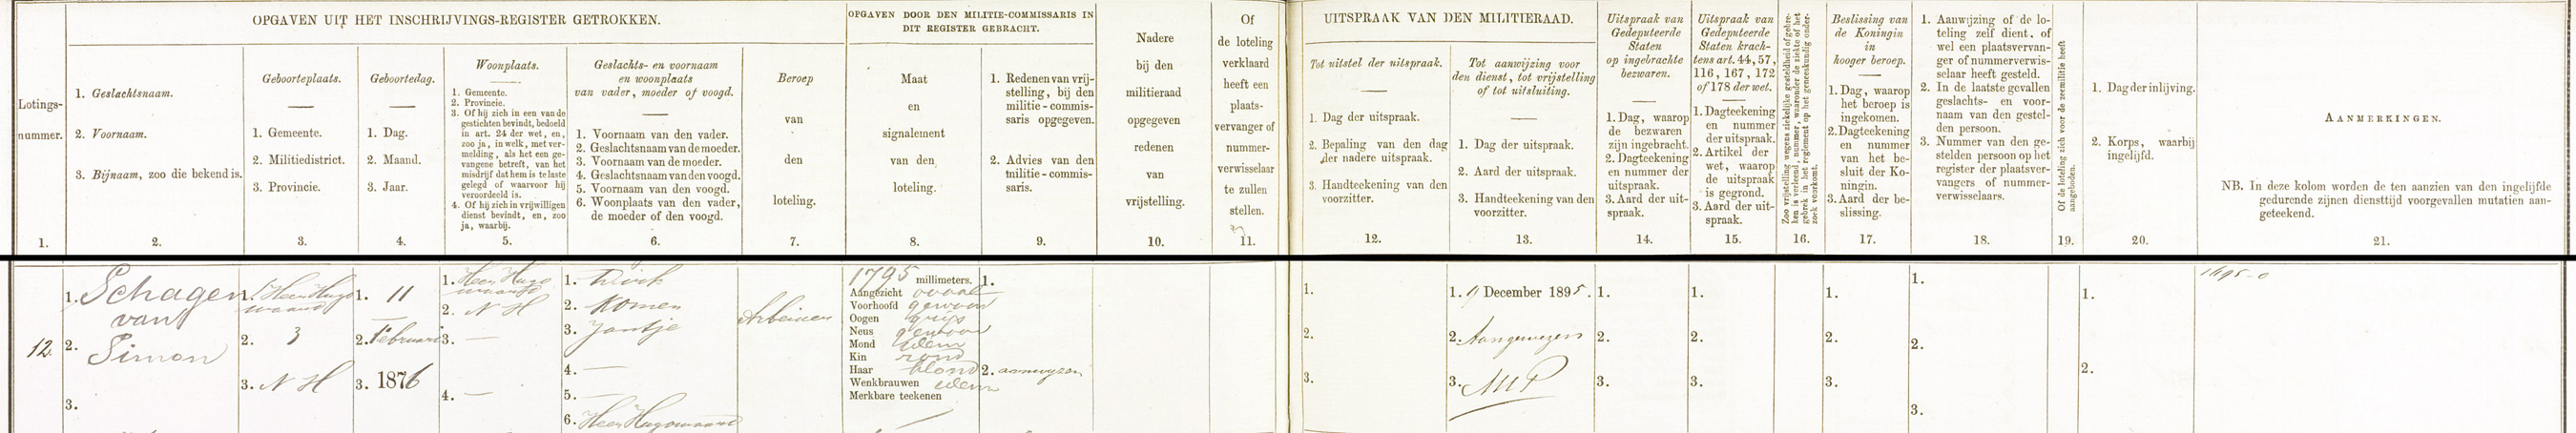 OPGAVEN UIT HET INSCHRIJVINGS-REGISTER GETROKKEN.
Lotings-
nummer.
1.
1. Geslachtsnaam.
2. Voornaam.
3. Bijnaam, zoo die bekend is.
2.
Geboorteplaats.
1. Gemeente.
2. Militiedistrict.
3. Provincie.
3.
Geboortedag.
1. Dag.
2. Maand.
3. Jaar.
4.
Woonplaats.
1. Gemeente.
2. Provincie.
3. Of hij zich in een van de
gestichten bevindt, bedoeld
in art. 24 der wet, en,
zoo ja, in welk, met ver-
melding, als het een ge-
vangene betreft, van het
misdrijf dat hem is te laste
gelegd of waarvoor hij
veroordeeld is.
4. Of hij zich in vrijwilligen
dienst bevindt, en, zoo
ja, waarbij.
5.
Geslachts- en voornaam
en woonplaats
van vader, moeder of voogd.
1. Voornaam van den vader.
2. Geslachtsnaam van de moeder.
3. Voornaam van de moeder.
4. Geslachtsnaam van den voogd.
5. Voornaam van den voogd.
6. Woonplaats van den vader,
de moeder of den voogd.
6.
Beroep
van
den
loteling.
7.
OPGAVEN DOOR DEN MILITIE-COMMISSARIS IN
DIT REGISTER GEBRACHT.
Maat
en
signalement
van den
loteling.
8.
1. Redenen van vrij-
stelling, bij den
militie-commis-
saris opgegeven.
2. Advies van den
militie-commis-
saris.
9.
Nadere
bij den
militieraad
opgegeven
redenen
van
vrijstelling.
10.
Of
de loteling
verklaard
heeft een
plaats-
vervanger of
nummer-
verwisselaar
te zullen
stellen.
11.
UITSPRAAK VAN DEN MILITIERAAD.
Tot uitstel der uitspraak.
1. Dag der uitspraak.
2. Bepaling van den dag
der nadere uitspraak.
3. Handteekening van den
voorzitter.
12.
Tot aanwijzing voor
den dienst, tot vrijstelling
of tot uitsluiting.
1. Dag der uitspraak.
2. Aard der uitspraak.
3. Handteekening van den
voorzitter.
13.
Uitspraak van
Gedeputeerde
Staten
op ingebrachte
bezwaren.
1. Dag, waarop
de bezwaren
zijn ingebracht.
2. Dagteekening
en nummer der
uitspraak.
3. Aard der uit-
spraak.
14.
Uitspraak van
Gedeputeerde
Staten krach-
tens art. 44, 57,
116, 167, 172
of 178 der wet.
1. Dagteekening
en nummer
der uitspraak.
2. Artikel der
wet, waarop
de uitspraak
is gegrond.
3. Aard der uit-
spraak.
15.
Zoo vrijstelling wegens ziekelijke gesteldheid of gebre-
ken is verleend, nummer, waaronder de ziekte of het
gebrek in het reglement op het geneeskundig onder-
zoek voorkomt.
16.
Beslissing van
de Koningin
in
hooger beroep.
1. Dag, waarop
het beroep is
ingekomen.
2. Dagteekening
en nummer
van het be-
sluit der Ko-
ningin.
3. Aard der be-
slissing.
17.
1. Aanwijzing of de lo-
teling zelf dient, of
wel een plaatsvervan-
ger of nummerverwis-
selaar heeft gesteld.
2. In de laatste gevallen
geslachts- en voor-
naam van den gestel-
den persoon.
3. Nummer van den ge-
stelden persoon op het
register der plaatsver-
vangers of nummer-
verwisselaars.
18.
Of de loteling zich voor de zeemilitie heeft
aangeboden.
19.
1. Dag der inlijving.
2. Korps, waarbij
ingelijfd.
20.
AANMERKINGEN.
NB. In deze kolom worden de ten aanzien van den ingelijfde
gedurende zijnen diensttijd voorgevallen mutatien aan-
geteekend.
21.
12.
1. Schagen
van
2. Simon
3.
1. Heer Hugo
waard
2. 3
3. N H
1. 11
2. Februari
3. 1876
1. Heer Hugo
waard
2. N H
3. —
4. —
1. Dirk
2. Komen
3. Jantje
4. —
5. —
6. Heer Hugowaard
Arbeider
1795 millimeters.
Aangezicht ovaal
Voorhoofd gewoon
Oogen grijs
Neus gewoon
Mond idem
Kin rond
Haar blond
Wenkbrauwen idem
Merkbare teekenen
1.
2. aanwijzen
1.
2.
3.
1. 9 December 1895.
2. Aangewezen
3.
1.
2.
3.
1.
2.
3.
1.
2.
3.
1.
2.
3.
1.
2.